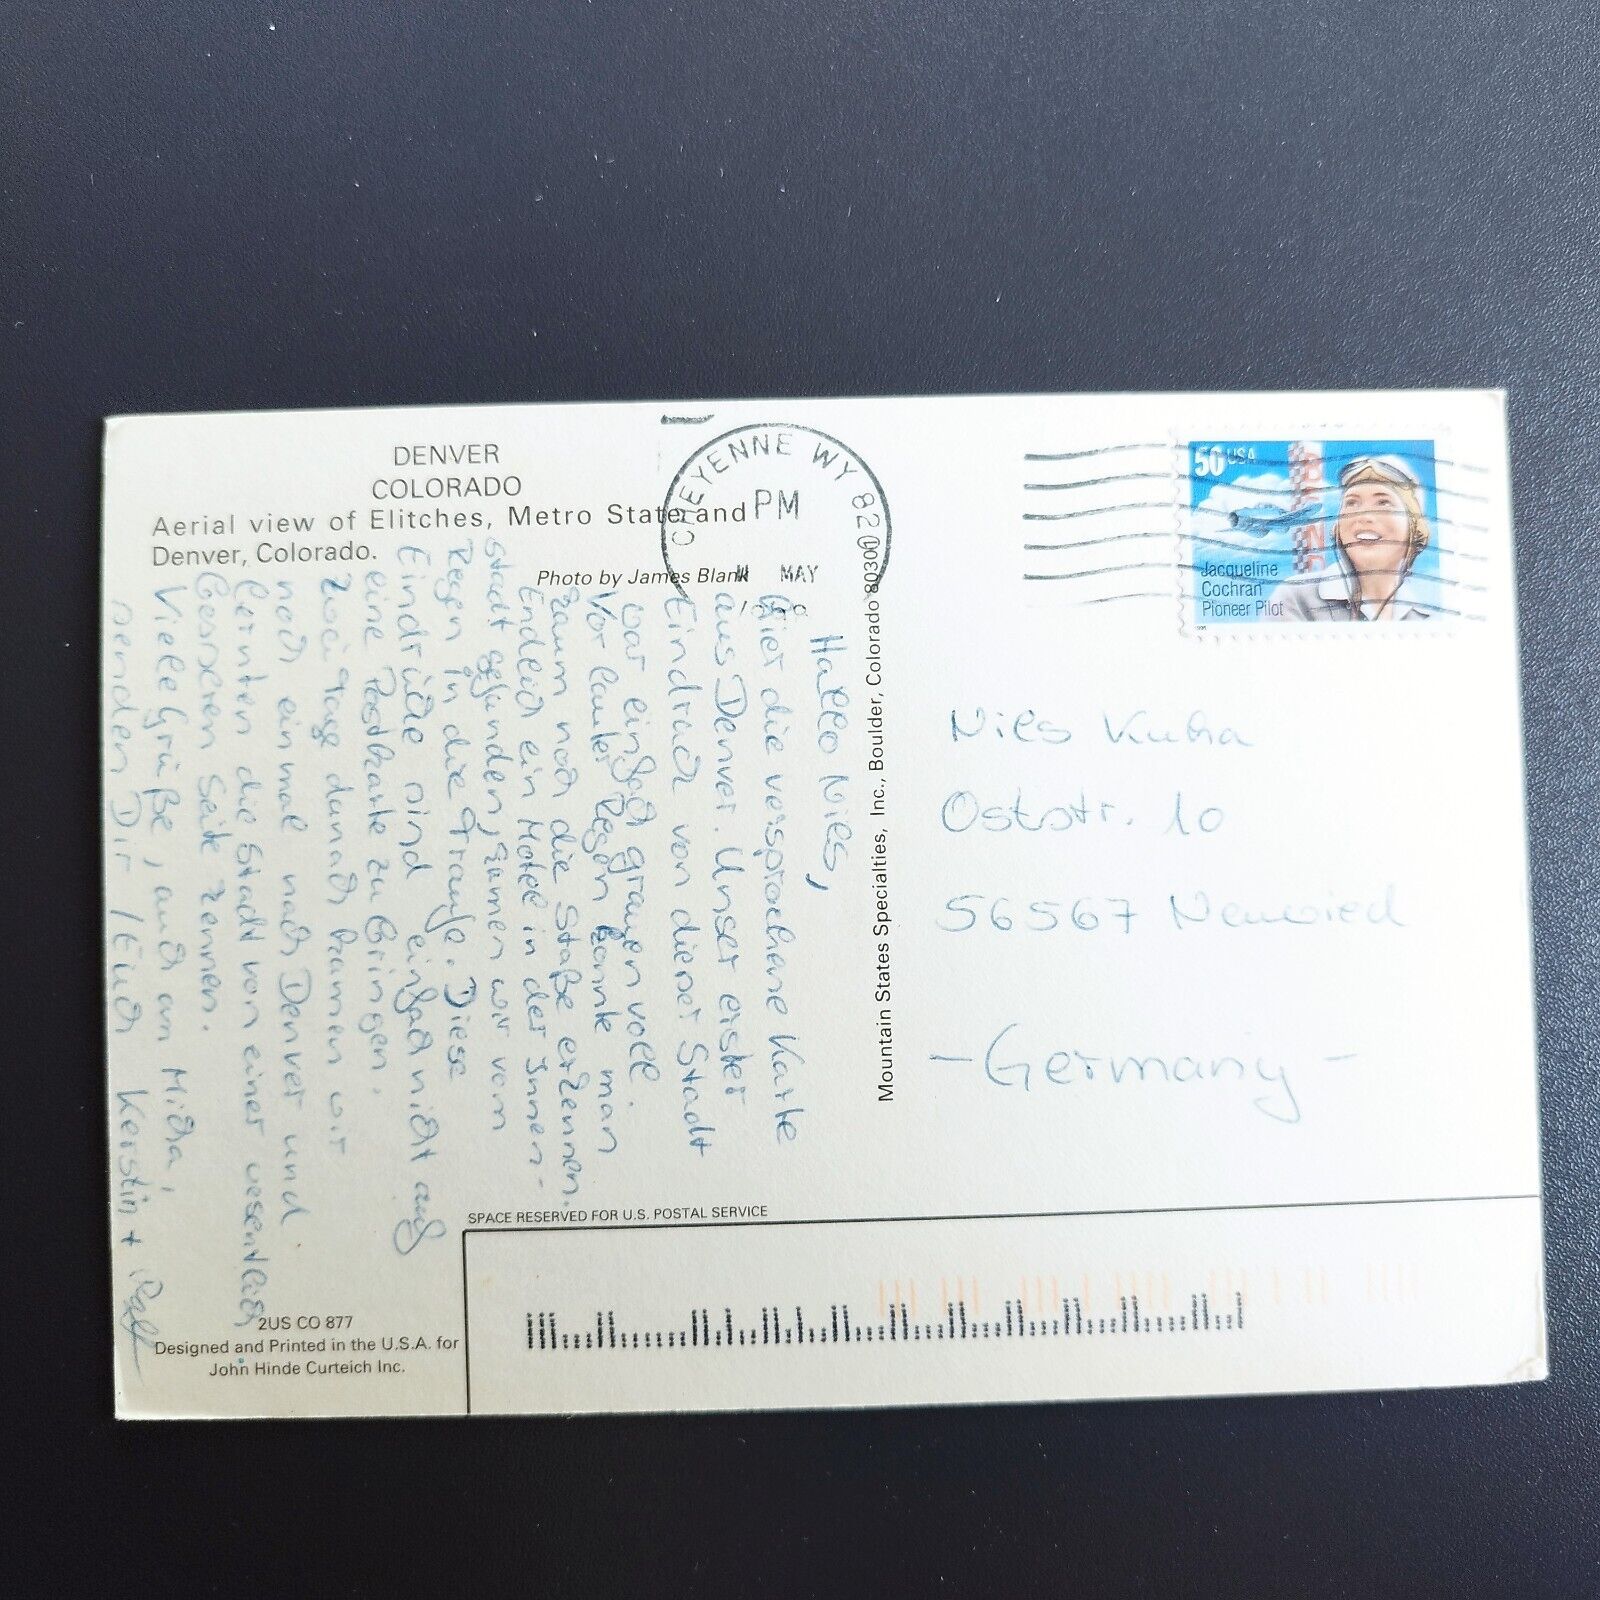 DENVER
COLORADO
Aerial view of Elitches, Metro State and
Denver, Colorado.
Photo by James Blank
CHEYENNE WY 820
PM
MAY
50 USA
Jacqueline
Cochran
Pioneer Pilot
Hallo Niels,
hier die versprochene Karte
aus Denver. Unser erster
Eindruck von dieser Stadt
war einfach grauenvoll.
Vor lauter Regen konnte man
kaum noch die Staße erkennen.
Endlich ein Motel in der Innen-
stadt gefunden, kamen wir vom
Regen in die Traufe. Diese
Eindrücke sind einfach nicht auf
eine Postkarte zu bringen.
Zwei Tage danach kamen wir
noch einmal nach Denver und
lernten die Stadt von einer wesentlich
besseren Seite kennen.
Viele Grüße, auch an Micha,
senden Dir / Euch Kerstin + Ralf
Mountain States Specialties, Inc., Boulder, Colorado 80301
Niels Kuha
Oststr. 10
56567 Neuwied
- Germany -
SPACE RESERVED FOR U.S. POSTAL SERVICE
2US CO 877
Designed and Printed in the U.S.A. for
John Hinde Curteich Inc.